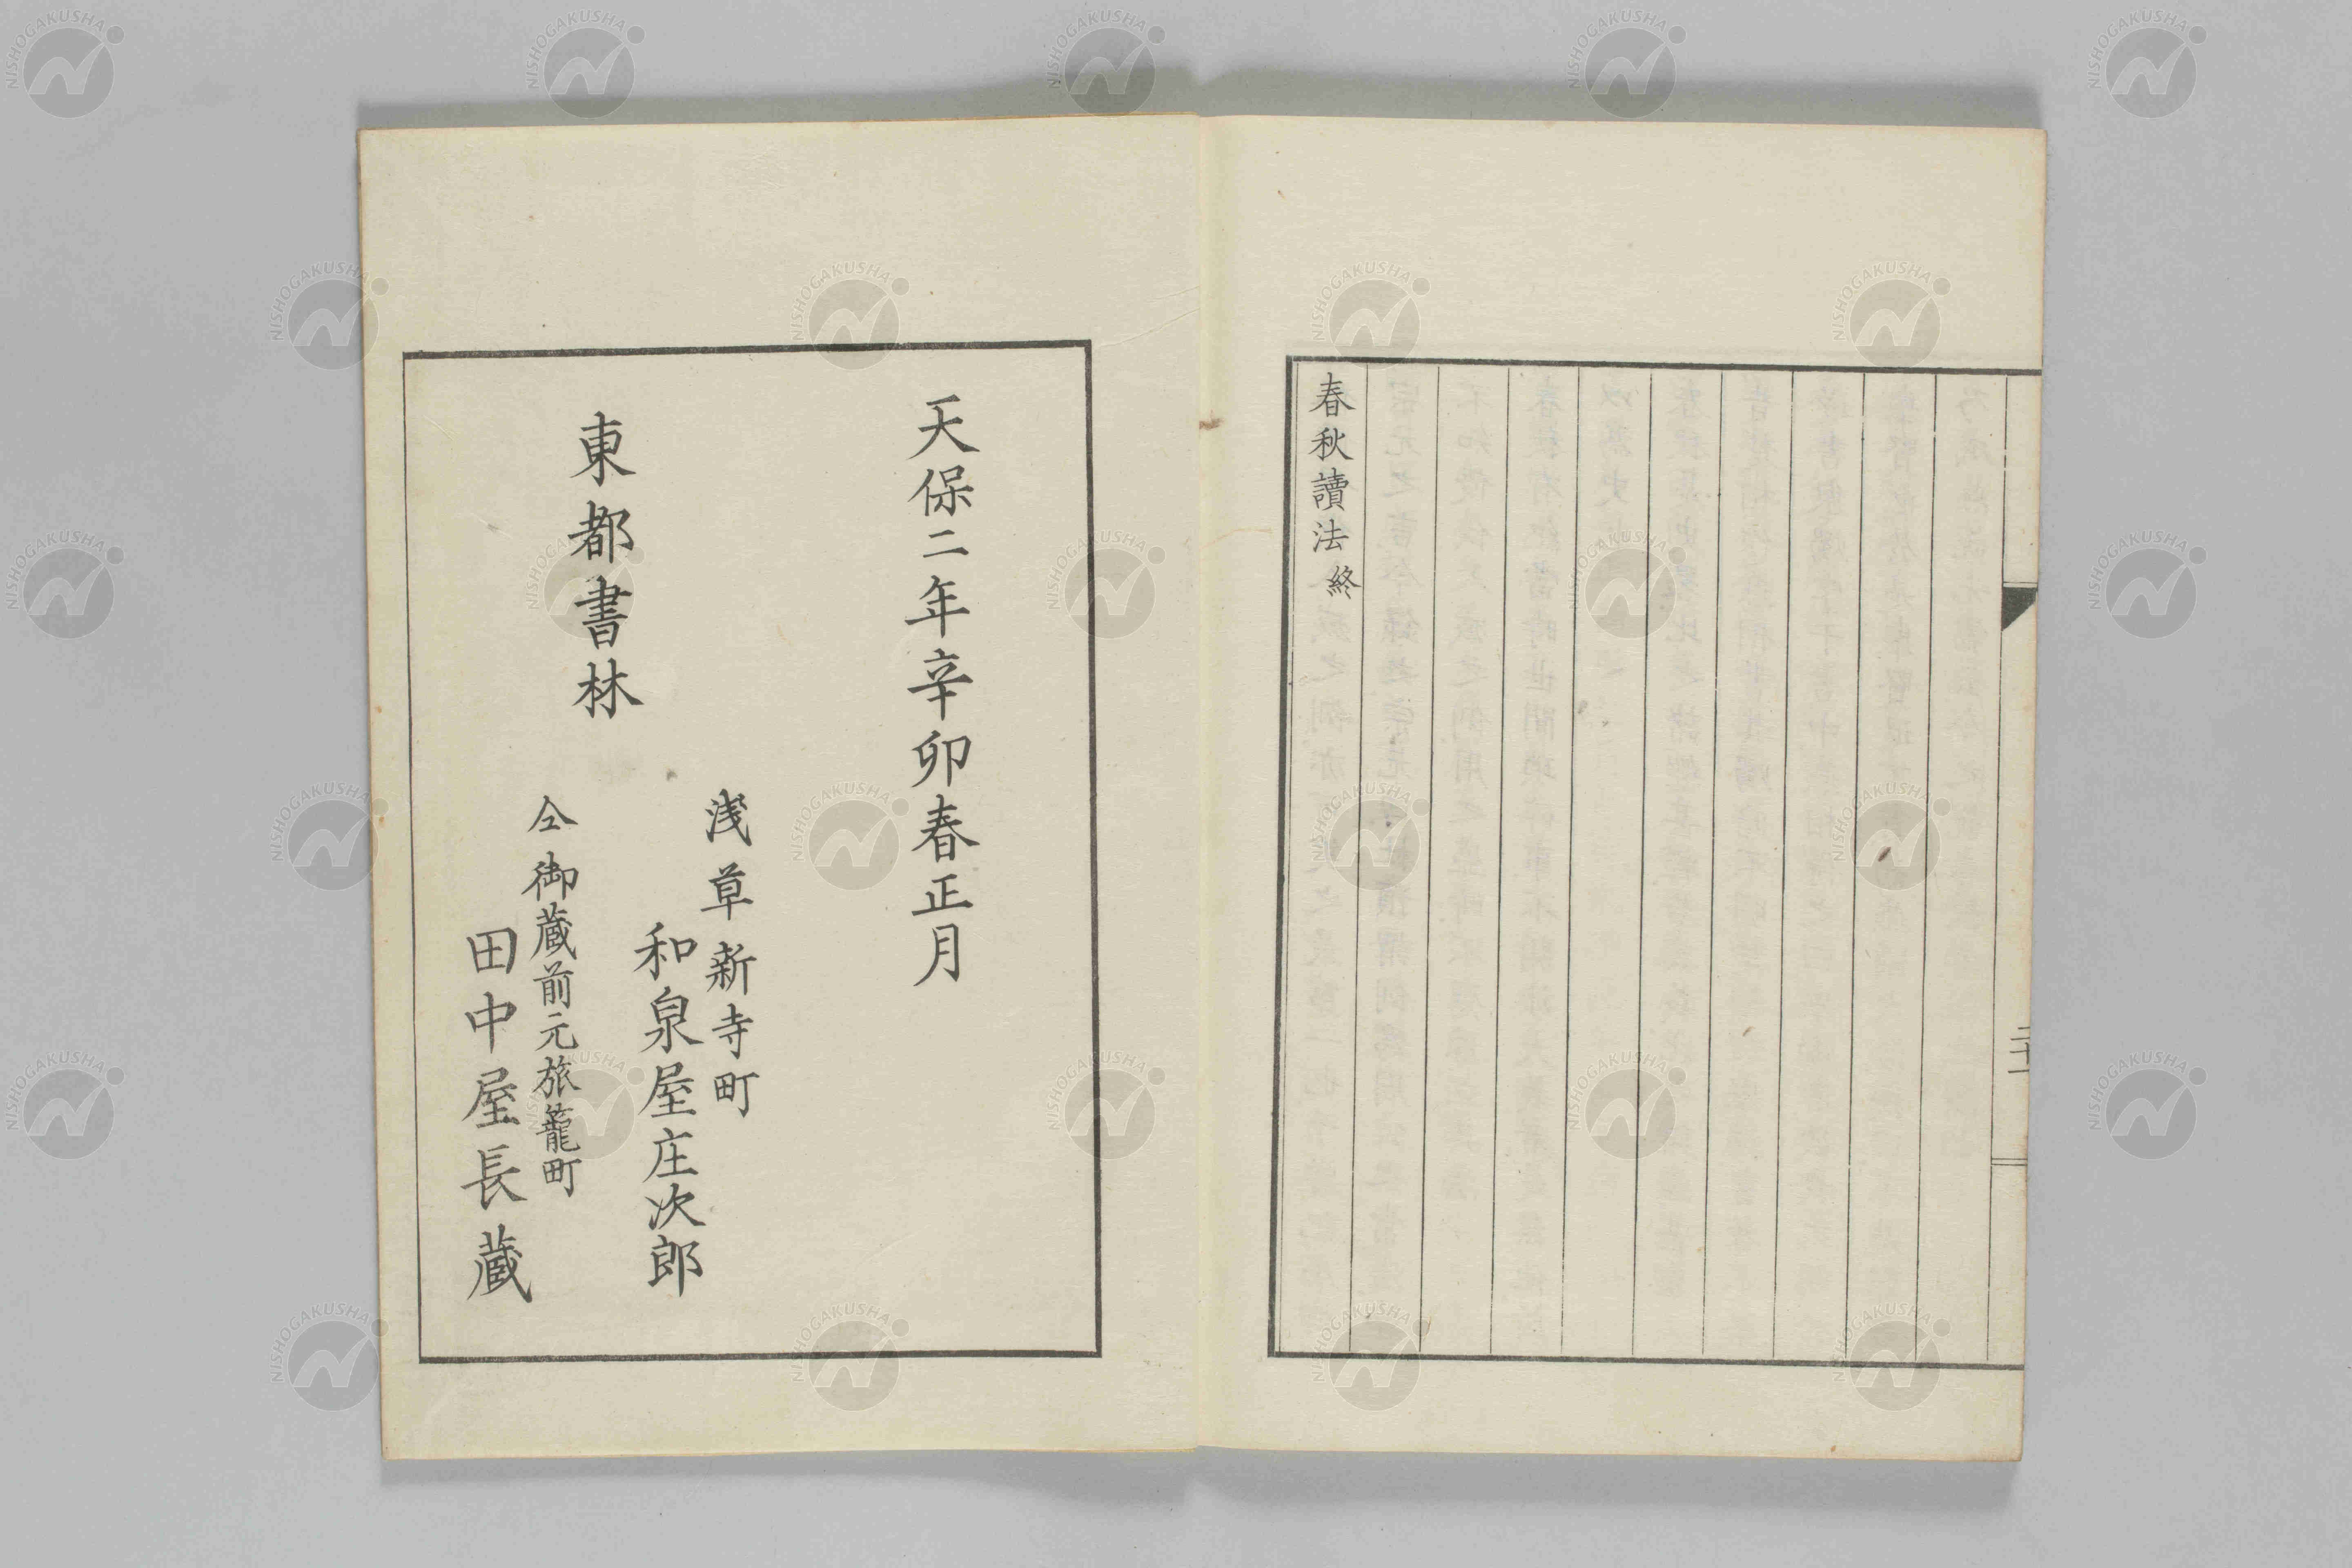 春秋讀法終
天保二年辛卯春正月
東都書林
浅草新寺町
和泉屋庄次郎
仝御蔵前元旅籠町
田中屋長蔵
NISHOGAKUSHA